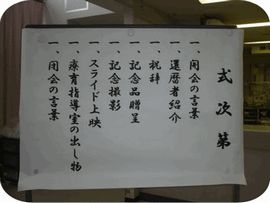 式次第
一、開会の言葉
一、還暦者紹介
一、祝辞
一、記念品贈呈
一、記念撮影
一、スライド上映
一、療育指導室の出し物
一、閉会の言葉